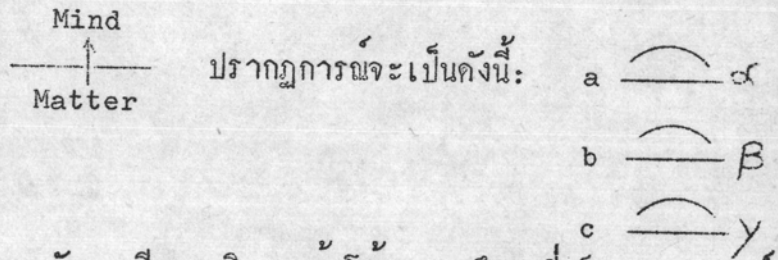 Mind
Matter
ปรากฏการณ์จะเป็นดังนี้:
a α
b β
c γ